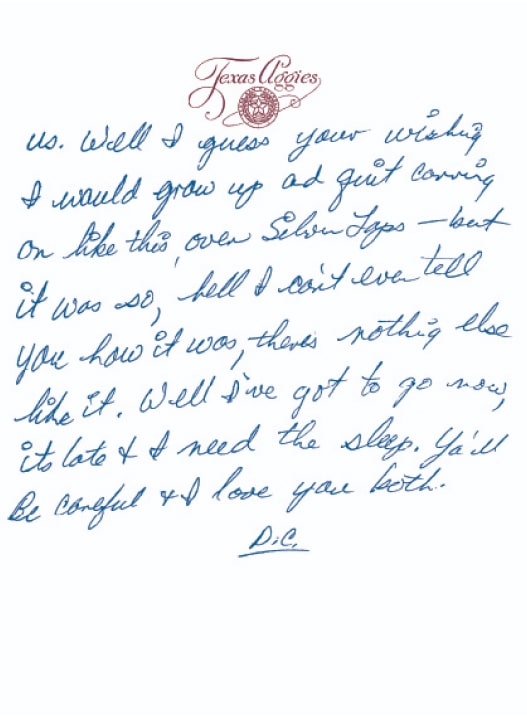 Texas Aggies
us. Well I guess your wishig
I would grow up ad quit carring
on like this, over Silver Taps - but
it was so, hell I can't even tell
you how it was, theres nothig else
like it. Well I've got to go now,
its late & I need the sleep. Ya'll
Be careful & I love you both.
D.C.